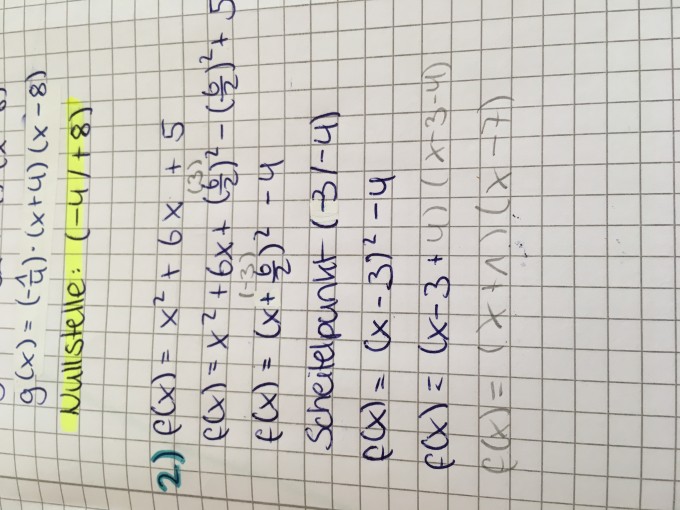 g(x) = (-1/4) · (x+4) (x-8)
Nullstelle: (-4/+8)
2) f(x) = x² + 6x + 5
(3)
f(x) = x² + 6x + (6/2)² - (6/2)² + 5
(-3)
f(x) = (x + 6/2)² - 4
Scheitelpunkt (-3/-4)
f(x) = (x-3)² - 4
f(x) = (x-3+4) (x-3-4)
f(x) = (x+1) (x-7)